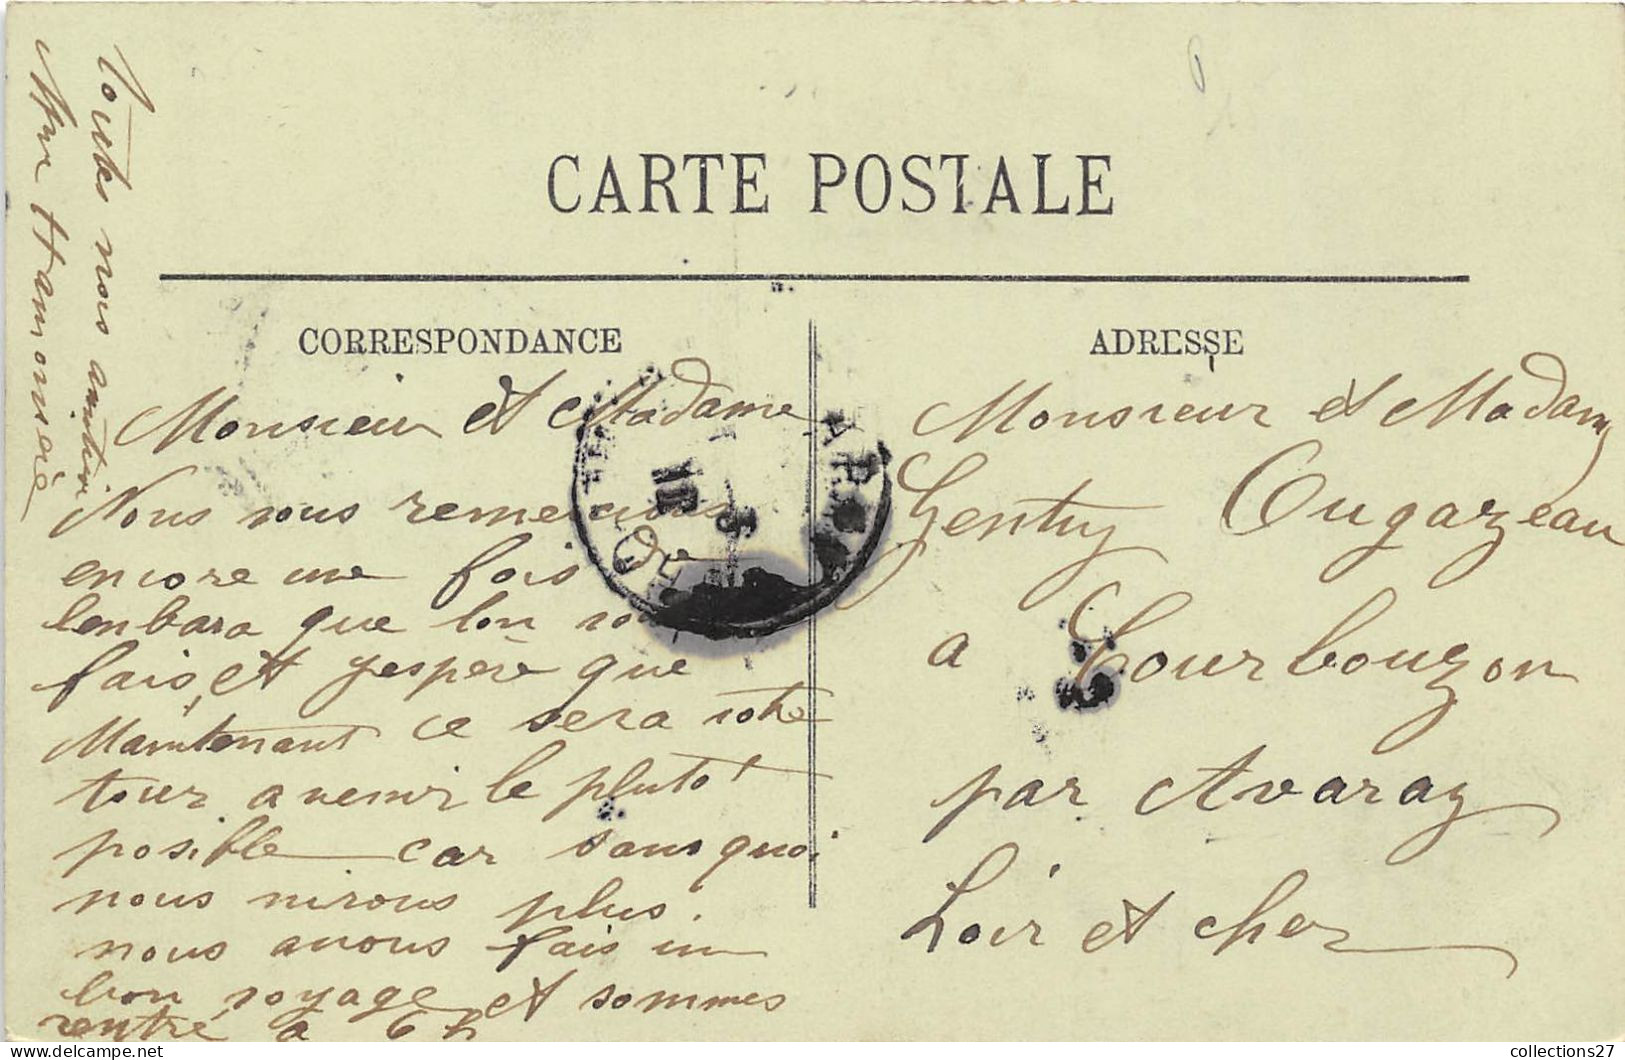 CARTE POSTALE
CORRESPONDANCE
Monsieur et Madame
Nous vous remercions
encore une fois
lenbara que lon vous
fais, et jespère que
Maintenant ce sera votre
tour a venir le plutot
posible car sans quoi
nous nirons plus.
nous avons fais un
bon voyage et sommes
rentré a 6 h
Toutes nos amitié
Mme Hamonière
ADRESSE
Monsieur et Madame
Gentuy Cugazeau
a Courbouzon
par Avaray
Loir et cher
collections27